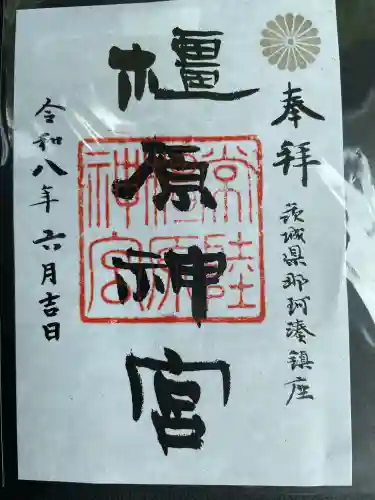 奉拝
茨城県那珂湊鎮座
橿原神宮
常陸橿原神宮
令和八年六月吉日